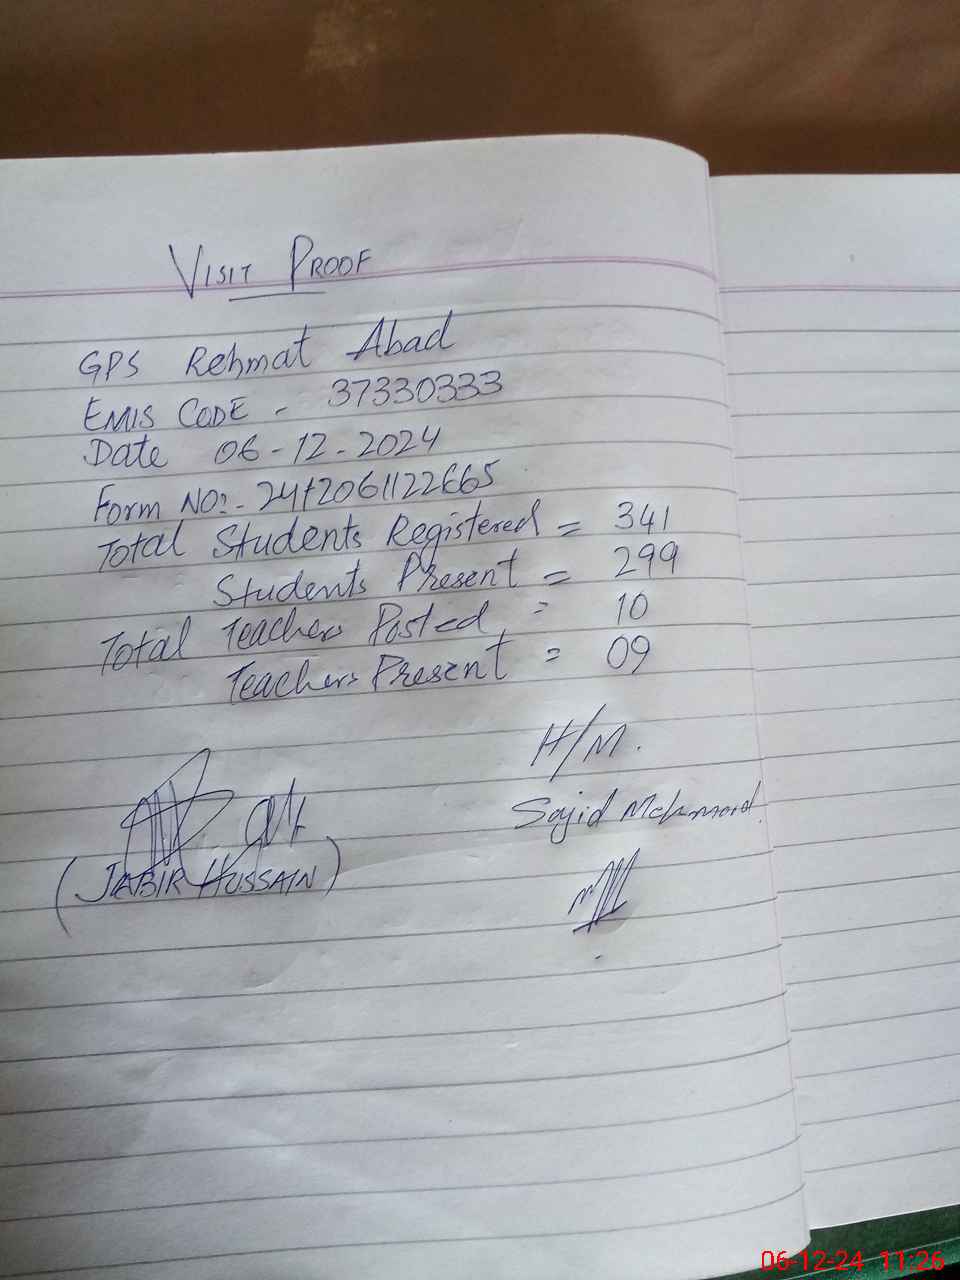 VISIT PROOF
GPS Rehmat Abad
EMIS CODE - 37330333
Date 06-12-2024
Form NO:- 2412061122665
Total Students Registered = 341
Students Present = 299
Total Teachers Posted = 10
Teachers Present = 09
H/M.
Sajid Mehmood.
(JABIR HUSSAIN)
06-12-24 11:26